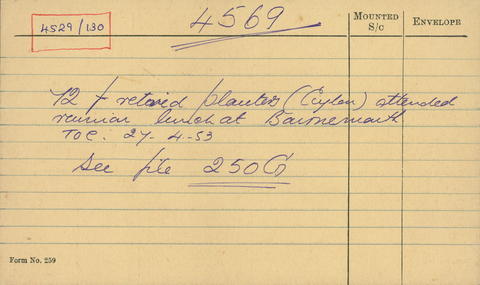 4529/130
4569
MOUNTED S/C
ENVELOPE
72 retired planters (Ceylon) attended
reunion lunch at Bournemouth
TOC. 27-4-53
See file 250G
Form No. 259